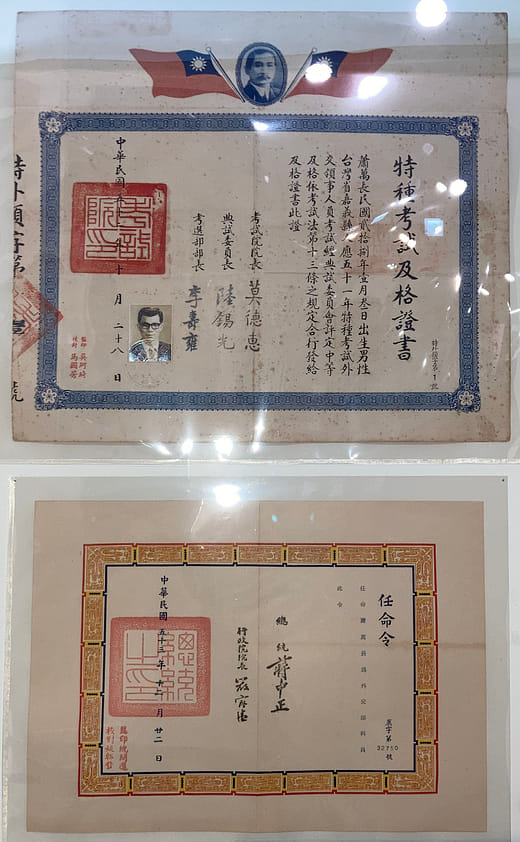 特種考試及格證書
蕭萬長民國貳拾捌年壹月叁日出生男性
台灣省嘉義縣人應五十一年特種考試外
交領事人員考試經典試委員會評定中等
及格依考試法第十三條之規定合行發給
及格證書此證
考試院院長 莫德惠
典試委員長 陸錫光
考選部部長 李壽雍
中華民國 年 十月二十八日
考試院印
監印
校對 馬國勞
任命令
任命蕭萬長為外交部科員
此令
總統 蔣中正
行政院院長 嚴家淦
中華民國五十三年十二月廿二日
總統之印
字第32750號